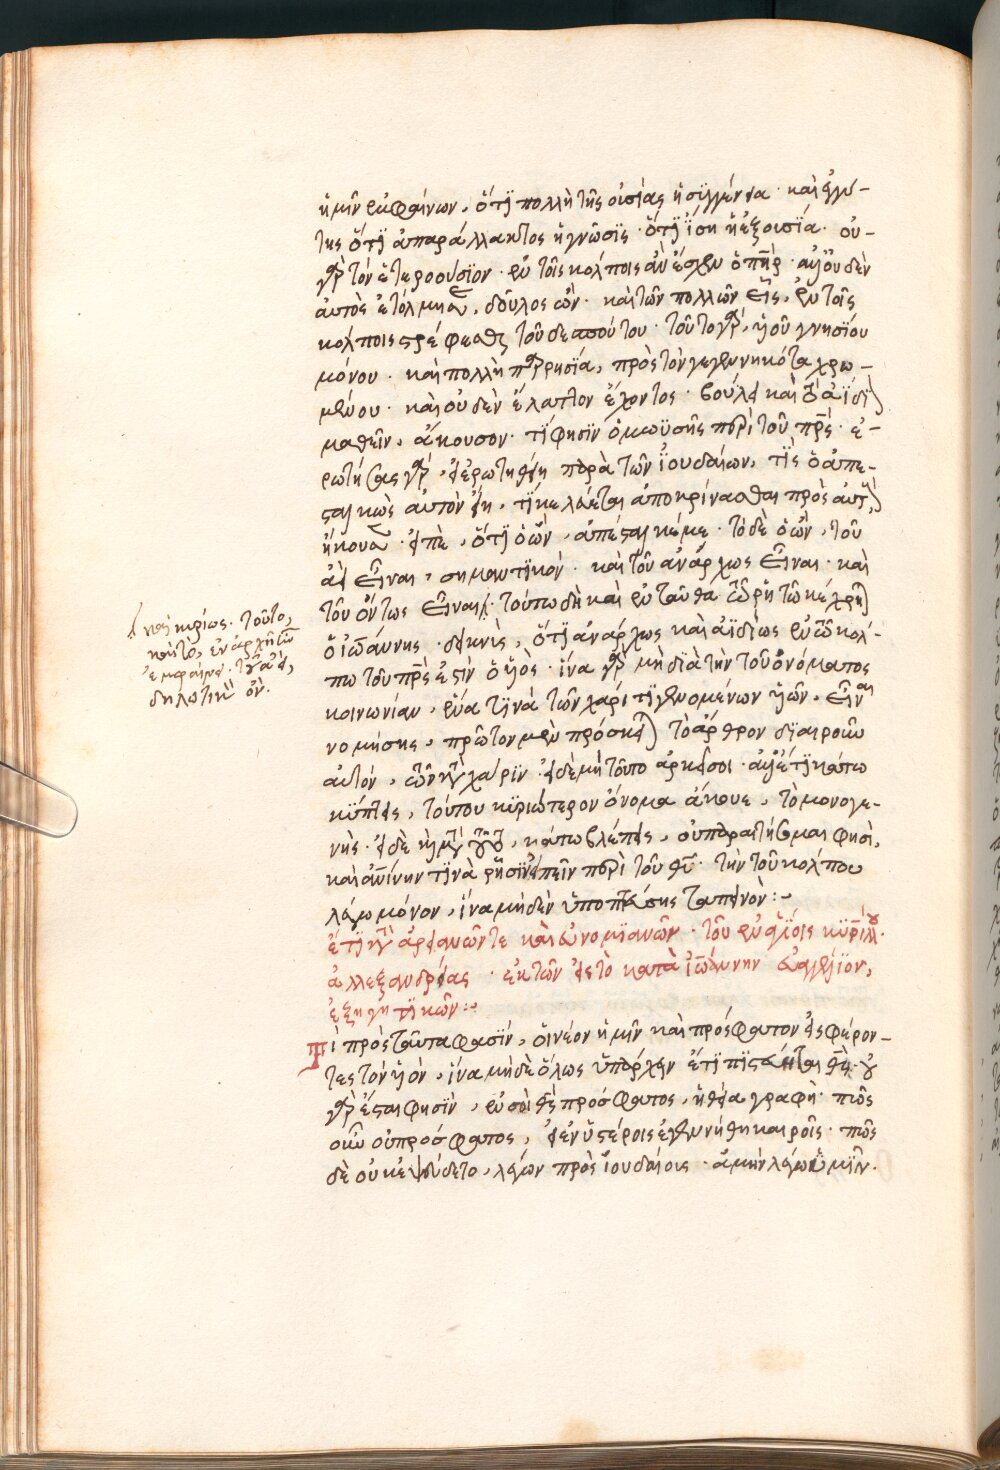 ἡμῖν ἐμφαίνων, ὅτϊ πολλὴ τῆς οὐσίας ἡ σϊγγένεια· καὶ
της ὅτϊ ἀπαράλλακτος ἡ γνῶσϊς· ὅτϊ ἴση ἡ ἐξουσΐα· οὐ-
γὰρ τὸν ἑτεροούσϊον· ἐν τοῖς κόλποις ἂν ἔσχεν ὁ πηρ· οὐδὲν
αὐτὸς ἐτόλμησεν, δοῦλος ὢν· καὶ τῶν πολλῶν εἷς, ἐν τοῖς
κόλποις στρέφεσθαι τοῦ δεσπότου· τοῦτο γὰρ, υἱοῦ γνησίου
μόνου· καὶ πολλῆ παρρησία, πρὸς τὸν γεγεννηκότα χρω-
μένου· καὶ οὐδὲν ἔλαττον ἔχοντος· βούλει καὶ
μαθεῖν, ἄκουσον· τί φησϊν ὁ μωϋσῆς περὶ τοῦ πρς· ἐ-
ρωτήσας γὰρ, εἰ ἐρωτηθείη παρὰ τῶν ἰουδαίων, τίς ὁ ἀπε-
σταλκὼς αὐτὸν εἴη, τί κελεύεται ἀποκρίνασθαι πρὸς αὐτ
ἤκουσεν· εἰπὲ, ὅτϊ ὁ ὢν, ἀπέσταλκέ με· τὸ δὲ ὁ ὢν, τοῦ
ἀεὶ εἶναι, σημαντϊκόν· καὶ τοῦ ἀνάρχως εἶναι· καὶ
τοῦ ὄντως εἶναι· τούτω δὴ καὶ ἐνταῦθα τῷ ῥήτω κέχρη
ὁ ἰωάννης· δεικνὺς, ὅτϊ ἀνάρχως καὶ ἀϊδίως ἐν τῶ κόλ-
πω τοῦ πρς ἐστὶν ὁ υἱός· ἵνα γὰρ μὴ δϊὰ τὴν τοῦ ὀνόματος
κοινωνίαν, ἕνα τϊνὰ τῶν χάρι τϊ γενομένων υἱῶν, εἶναι
νομήσης, πρῶτον μὲν πρόσκει τὸ ἄρθρον δϊαιροῦν
αὐτόν, τῶν χάρϊν· εἰ δὲ μὴ τοῦτο ἀρκεῖ σοι· ἀλλ' ἔτϊ κάτω
κύπτεις, τούτου κϋριώτερον ὄνομα ἄκουε, τὸ μονογε-
νής· εἰ δὲ κάτω βλέπεις, οὐ παραιτήσομαι φησὶ,
καὶ ἀνθρωπίνην τϊνὰ ῥῆσϊν εἰπεῖν περὶ τοῦ θυ· τὴν τοῦ κόλπου
λέγω μόνον, ἵνα μηδὲν ὑποπτεύσης ταπεινὸν:~
ἔτϊ κατὰ ἀρειανῶν τε καὶ εὐνομϊανῶν· τοῦ ἐν ἁγίοις κϋρίλλου
ἀλλεξανδρείας· ἐκ τῶν εἰς τὸ κατὰ ἰωάννην εὐαγγέλϊον,
ἐξηγητϊκῶν:~
Τί πρὸς ταῦτα φασϊν, οἱ νέον ἡμῖν καὶ πρόσφατον εἰσφέρον-
τες τὸν υἱὸν, ἵνα μηδὲ ὅλως ὑπάρχων ἔτϊ πϊστεύηται θς· οὐ
γὰρ ἔσται φησὶν, ἐν σοὶ θς πρόσφατος, ἡ θεία γραφὴ· πῶς
οὖν οὐ πρόσφατος, εἰ ἐν ὑστέροις ἐγεννήθη καιροῖς· πῶς
δὲ οὐκ ἐψεύδετο, λέγων πρὸς ἰουδαίους· ἀμὴν λέγω ὑμῖν·
καὶ κυρίως· τοῦτο,
καὶ τὸ, ἐν ἀρχῆ ἦν
ἐμφαίνει· τοῦ ἀεὶ,
δηλωτικὸν ὄν.